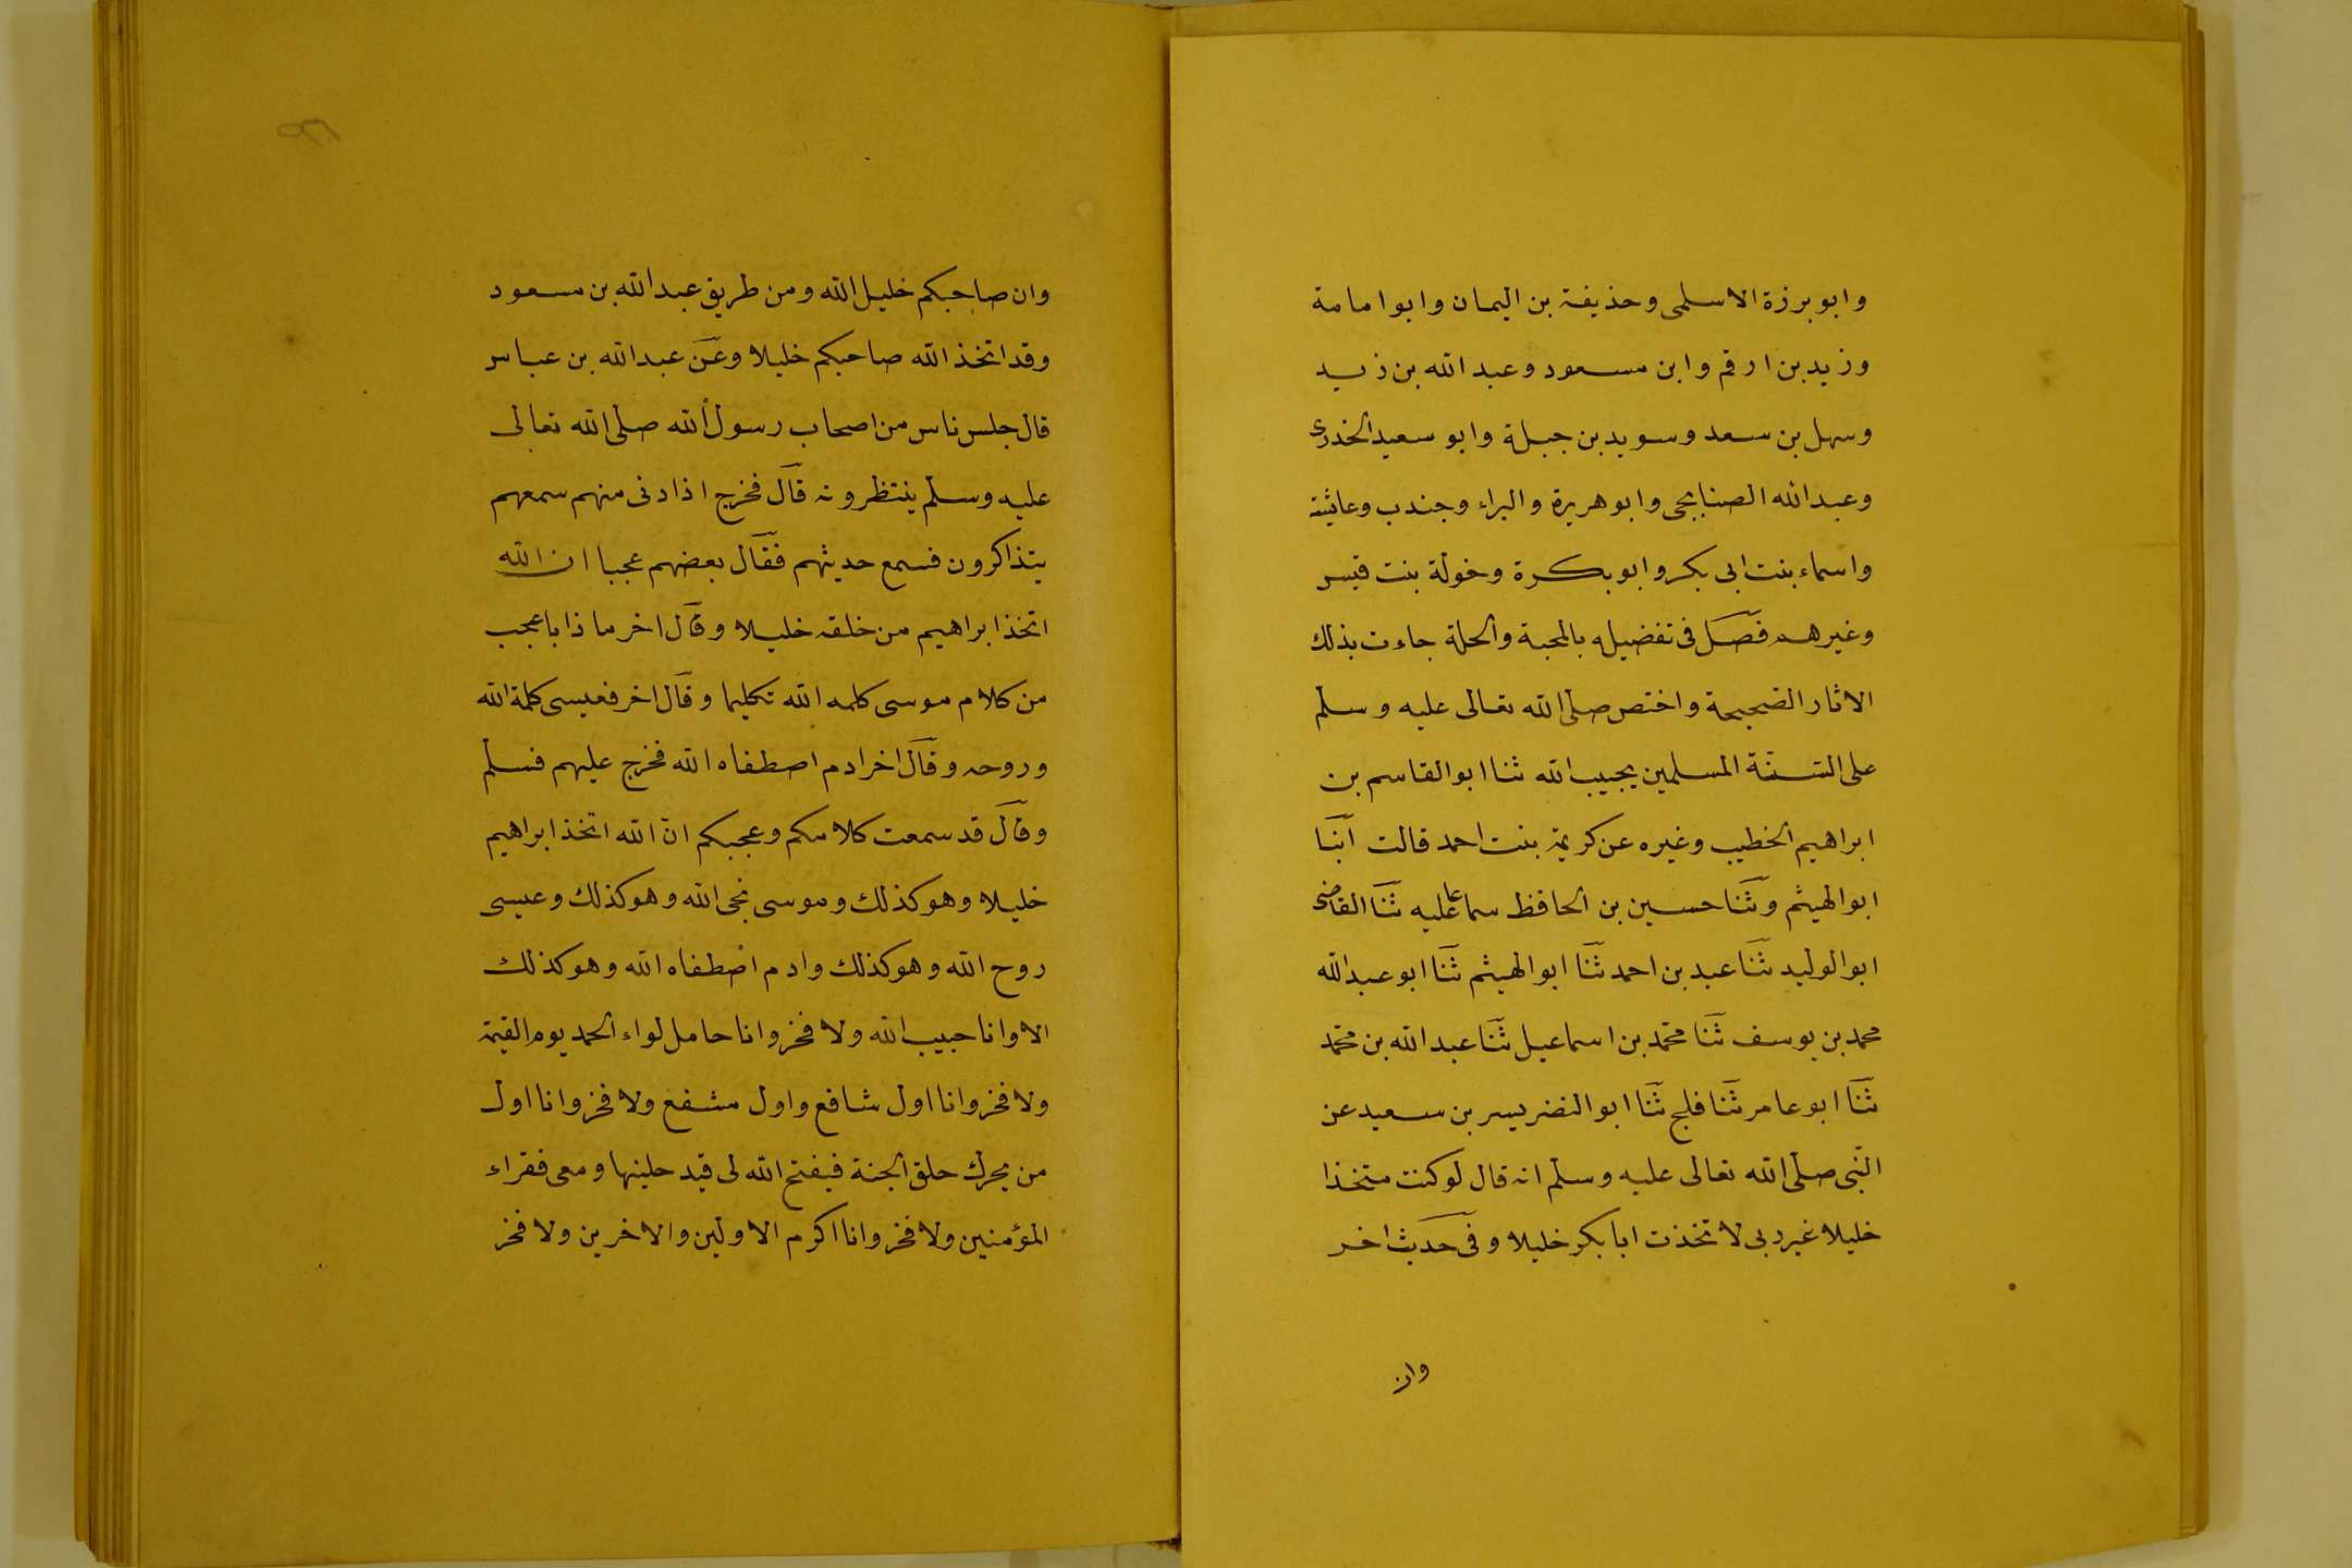 وابو برزة الاسلمى وحذيفة بن اليمان وابوا مامة
وزيد بن ارقم وابن مسعود وعبد الله بن زيد
وسهل بن سعد وسويد بن جبلة وابو سعيد الخدرى
وعبد الله الصنابحى وابو هريرة والبراء وجندب وعايشة
واسماء بنت ابى بكر وابو بكرة وخولة بنت قيس
وغيرهم فصل فى تفضيله بالمحبة والحلة جاءت بذلك
الاثار الصحيحة واختص صلى الله تعالى عليه وسلم
على السنة المسلمين بحبيب الله ثنا ابو القاسم بن
ابراهيم الخطيب وغيره عن كريمة بنت احمد قالت انبا
ابو الهيثم وثنا حسين بن الحافظ سماعا عليه ثنا القاضى
ابو الوليد ثنا عبد بن احمد ثنا ابو الهيثم ثنا ابو عبد الله
محمد بن يوسف ثنا محمد بن اسماعيل ثنا عبد الله بن محمد
ثنا ابو عامر ثنا فلج ثنا ابو النضر يسر بن سعيد عن
النبى صلى الله تعالى عليه وسلم انه قال لو كنت متخذا
خليلا غير ربى لاتخذت ابا بكر خليلا وفى حديث اخر
وان
وان صاحبكم خليل الله ومن طريق عبد الله بن مسعود
وقد اتخذ الله صاحبكم خليلا وعن عبد الله بن عباس
قال جلس ناس من اصحاب رسول الله صلى الله تعالى
عليه وسلم ينتظرونه قال فخرج اذا دنى منهم سمعهم
يتذاكرون فسمع حديثهم فقال بعضهم عجبا ان الله
اتخذ ابراهيم من خلقه خليلا وقال اخر ماذا باعجب
من كلام موسى كلمه الله تكليما وقال اخر فعيسى كلمة الله
وروحه وقال اخر ادم اصطفاه الله فخرج عليهم فسلم
وقال قد سمعت كلامكم وعجبكم ان الله اتخذ ابراهيم
خليلا وهو كذلك وموسى نجى الله وهو كذلك وعيسى
روح الله وهو كذلك وادم اصطفاه الله وهو كذلك
الا وانا حبيب الله ولا فخر وانا حامل لواء الحمد يوم القيمة
ولا فخر وانا اول شافع واول مشفع ولا فخر وانا اول
من يحرك حلق الجنة فيفتح الله لى فيد خلينها ومعى فقراء
المؤمنين ولا فخر وانا اكرم الاولين والاخرين ولا فخر